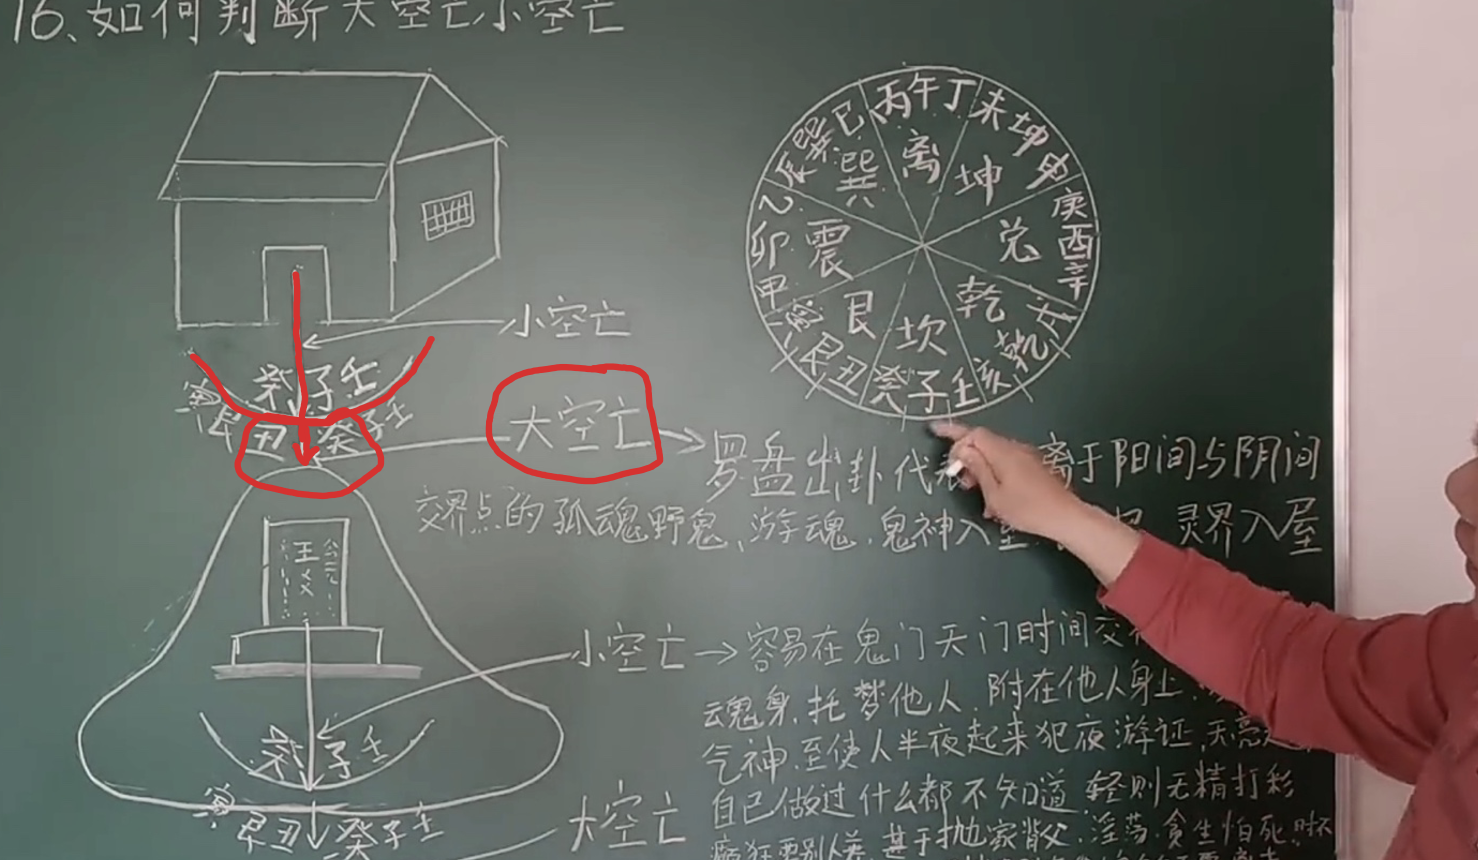 16、如何判断大空亡小空亡
丙午丁
未坤申
庚酉辛
戌乾亥
壬子癸
丑艮寅
甲卯乙
辰巽巳
离
坤
兑
乾
坎
艮
震
巽
小空亡
癸子壬
寅艮丑癸子壬
大空亡
罗盘出卦代 离于阳间与阴间
交界点的孤魂野鬼、游魂、鬼神入 灵界入屋
王
公元
小空亡
容易在鬼门天门时间交
魂身,托梦他人,附在他人身上,
气神,至使人半夜起来犯夜游证,天亮
癸子壬
寅艮丑癸子壬
大空亡
自己做过什么都不知道 轻则无精打彩
甚于抛家背父,淫荡,贪生怕死,